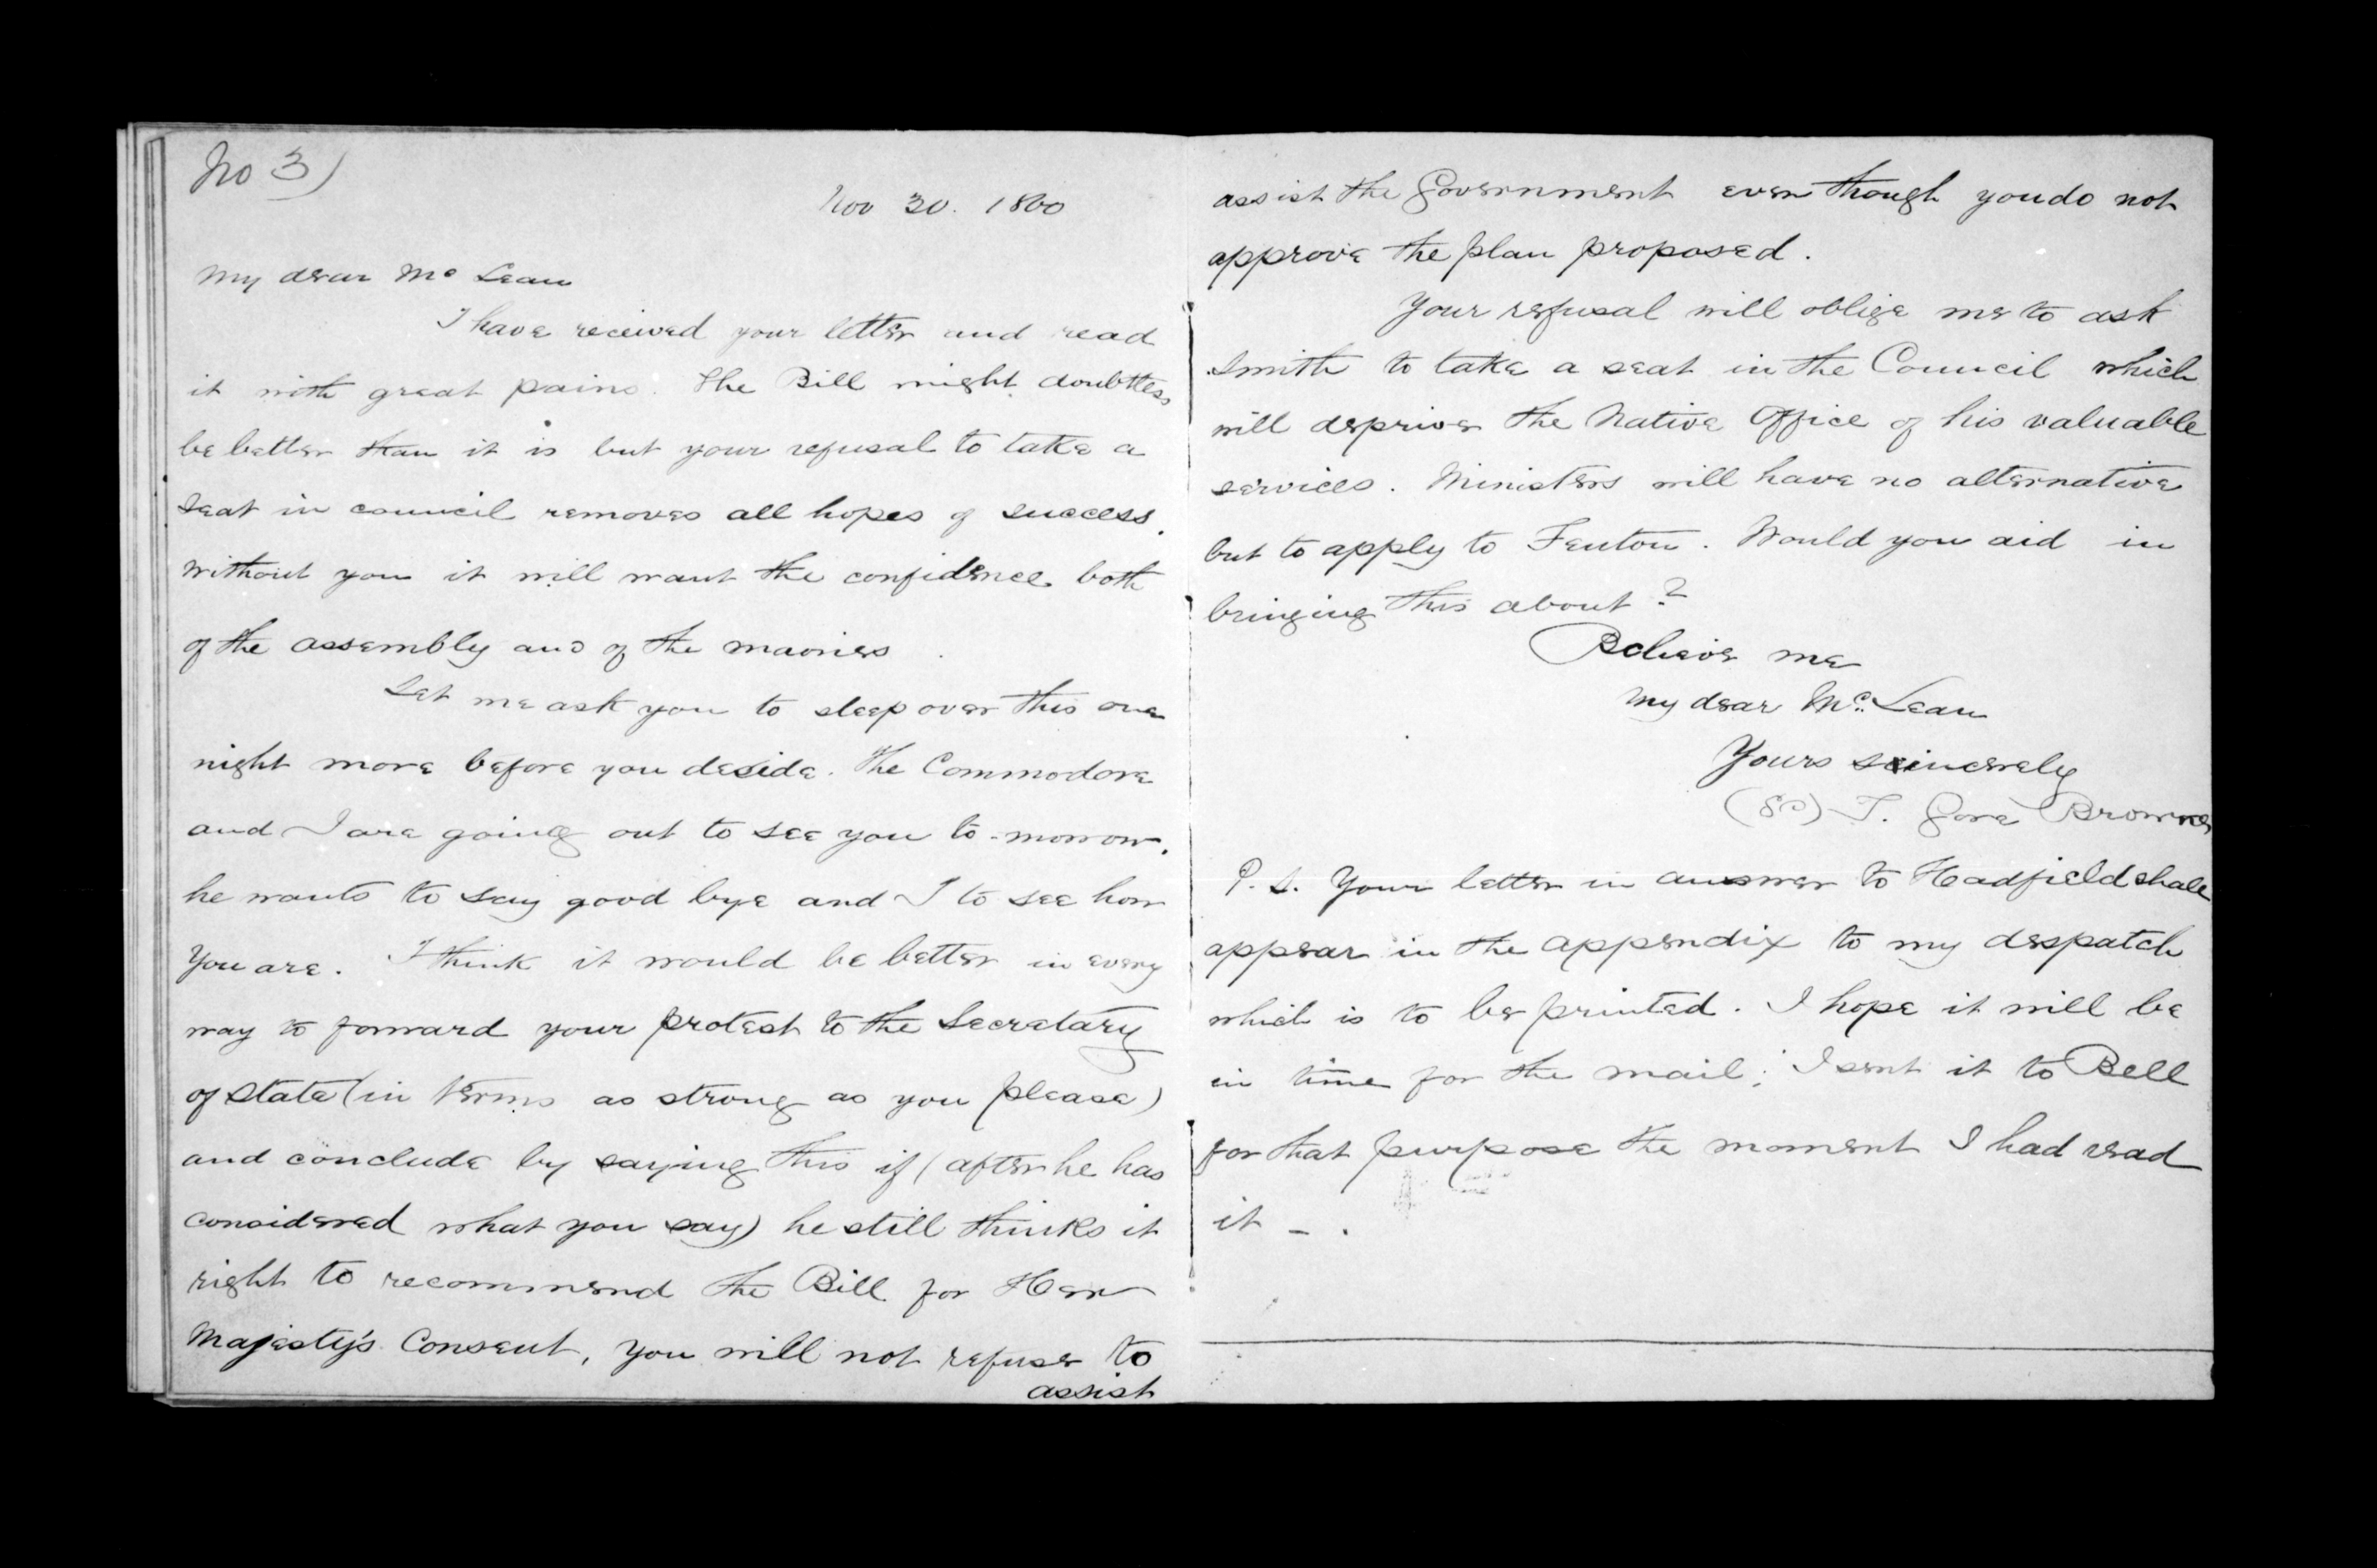 No 3)
Nov 30. 1860
My dear Mc Lean
I have received your letter and read
it with great pains. The Bill might doubtless
be better than it is but your refusal to take a
seat in council removes all hopes of success.
without you it will want the confidence both
of the assembly and of the maories.
Let me ask you to sleep over this one
night more before you decide. The Commodore
and I are going out to see you to-morrow.
he wants to say good bye and I to see how
you are. I think it would be better in every
way to forward your protest to the Secretary
of State (in terms as strong as you please)
and conclude by saying this if (after he has
considered what you say) he still thinks it
right to recommend the Bill for Her
Majesty's Consent, you will not refuse to
assist
assist the Government even though you do not
approve the plan proposed.
Your refusal will oblige me to ask
Smith to take a seat in the Council which
will deprive the Native Office of his valuable
services. Ministers will have no alternative
but to apply to Fenton. Would you aid in
bringing this about?
Believe me
My dear Mc. Lean
Yours sincerely
(SD) T. Gore Browne
P.S. Your letter in answer to Hadfield shall
appear in the appendix to my despatch
which is to be printed. I hope it will be
in time for the mail; I sent it to Bell
for that purpose the moment I had read
it - .